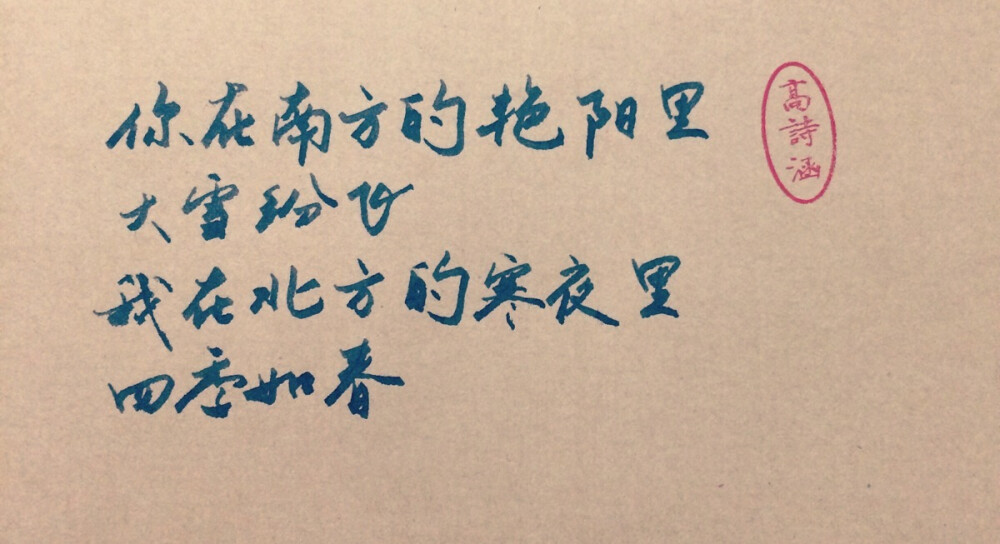 你在南方的艳阳里
大雪纷飞
我在北方的寒夜里
四季如春
高詩涵